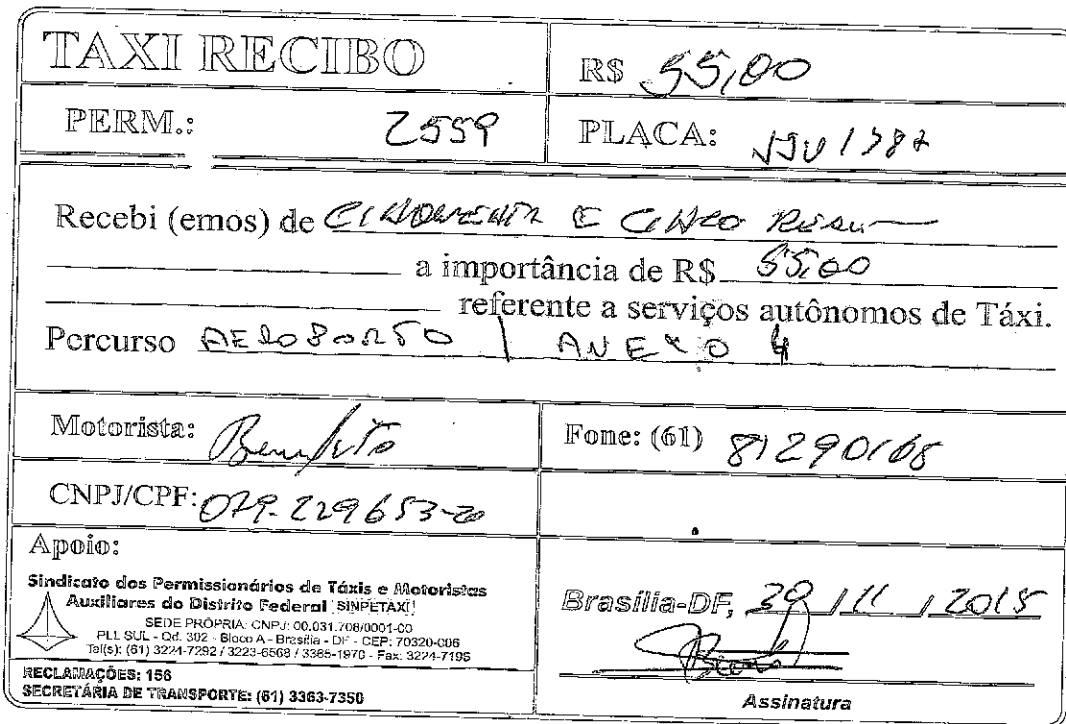 TAXI RECIBO
R$ 55,00
PERM.: 2559
PLACA:
Recebi (emos) de CINQUENTA E CINCO REAIS
a importância de R$ 55,00
referente a serviços autônomos de Táxi.
Percurso AEROPORTO / ANEXO 4
Motorista: Benedito
Fone: (61) 81290168
CNPJ/CPF: 079.229653-20
Apoio:
Sindicato dos Permissionários de Táxis e Motoristas
Auxiliares do Distrito Federal [SINPETAXI]
SEDE PRÓPRIA: CNPJ: 00.031.708/0001-00
PLL SUL - Qd. 302 - Bloco A - Brasília - DF - CEP: 70320-006
Tel(s): (61) 3224-7292 / 3223-6568 / 3385-1976 - Fax: 3224-7195
RECLAMAÇÕES: 156
SECRETÁRIA DE TRANSPORTE: (61) 3363-7350
Brasília-DF, 29 / 11 / 2015
Assinatura